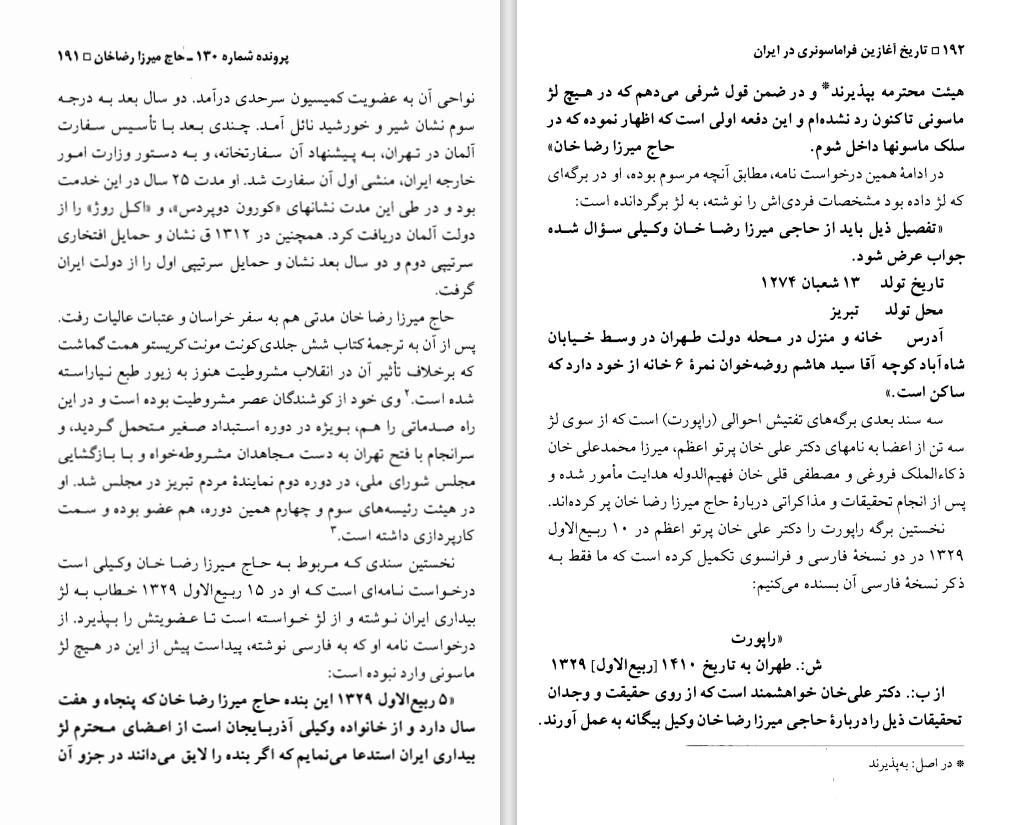 پرونده شماره ۱۳۰ ـ حاج میرزا رضاخان □ ۱۹۱
نواحی آن به عضویت کمیسیون سرحدی درآمد. دو سال بعد به درجه
سوم نشان شیر و خورشید نائل آمد. چندی بعد با تأسیس سفارت
آلمان در تهران، به پیشنهاد آن سفارتخانه، و به دستور وزارت امور
خارجه ایران، منشی اول آن سفارت شد. او مدت ۲۵ سال در این خدمت
بود و در طی این مدت نشانهای «کورون دوپردس»، و «اکل روژ» را از
دولت آلمان دریافت کرد. همچنین در ۱۳۱۲ ق نشان و حمایل افتخاری
سرتیپی دوم و دو سال بعد نشان و حمایل سرتیپی اول را از دولت ایران
گرفت.
حاج میرزا رضا خان مدتی هم به سفر خراسان و عتبات عالیات رفت.
پس از آن به ترجمهٔ کتاب شش جلدی کونت مونت کریستو همت گماشت
که برخلاف تأثیر آن در انقلاب مشروطیت هنوز به زیور طبع نیاراسته
شده است.۲ وی خود از کوشندگان عصر مشروطیت بوده است و در این
راه صدماتی را هم، بویژه در دوره استبداد صغیر متحمل گردید، و
سرانجام با فتح تهران به دست مجاهدان مشروطه‌خواه و با بازگشایی
مجلس شورای ملی، در دوره دوم نمایندهٔ مردم تبریز در مجلس شد. او
در هیئت رئیسه‌های سوم و چهارم همین دوره، هم عضو بوده و سمت
کارپردازی داشته است.۳
نخستین سندی که مربوط به حاج میرزا رضا خان وکیلی است
درخواست نامه‌ای است که او در ۱۵ ربیع‌الاول ۱۳۲۹ خطاب به لژ
بیداری ایران نوشته و از لژ خواسته است تا عضویتش را بپذیرد. از
درخواست نامه او که به فارسی نوشته، پیداست پیش از این در هیچ لژ
ماسونی وارد نبوده است:
«۵ ربیع‌الاول ۱۳۲۹ این بنده حاج میرزا رضا خان که پنجاه و هفت
سال دارد و از خانواده وکیلی آذربایجان است از اعضای محترم لژ
بیداری ایران استدعا می‌نمایم که اگر بنده را لایق می‌دانند در جزو آن
۱۹۲ □ تاریخ آغازین فراماسونری در ایران
هیئت محترمه بپذیرند* و در ضمن قول شرفی می‌دهم که در هیچ لژ
ماسونی تاکنون رد نشده‌ام و این دفعه اولی است که اظهار نموده که در
سلک ماسونها داخل شوم. حاج میرزا رضا خان»
در ادامهٔ همین درخواست نامه، مطابق آنچه مرسوم بوده، او در برگه‌ای
که لژ داده بود مشخصات فردی‌اش را نوشته، به لژ برگردانده است:
«تفصیل ذیل باید از حاجی میرزا رضا خان وکیلی سؤال شده
جواب عرض شود.
تاریخ تولد ۱۳ شعبان ۱۲۷۴
محل تولد تبریز
آدرس خانه و منزل در محله دولت طهران در وسط خیابان
شاه‌آباد کوچه آقا سید هاشم روضه‌خوان نمرهٔ ۶ خانه از خود دارد که
ساکن است.»
سه سند بعدی برگه‌های تفتیش احوالی (راپورت) است که از سوی لژ
سه تن از اعضا به نامهای دکتر علی خان پرتو اعظم، میرزا محمدعلی خان
ذکاءالملک فروغی و مصطفی قلی خان فهیم‌الدوله هدایت مأمور شده و
پس از انجام تحقیقات و مذاکراتی دربارهٔ حاج میرزا رضا خان پر کرده‌اند.
نخستین برگه راپورت را دکتر علی خان پرتو اعظم در ۱۰ ربیع‌الاول
۱۳۲۹ در دو نسخهٔ فارسی و فرانسوی تکمیل کرده است که ما فقط به
ذکر نسخهٔ فارسی آن بسنده می‌کنیم:
«راپورت
ش:. طهران به تاریخ ۱۴۱۰ [ربیع‌الاول] ۱۳۲۹
از ب:. دکتر علی‌خان خواهشمند است که از روی حقیقت و وجدان
تحقیقات ذیل را دربارهٔ حاجی میرزا رضا خان وکیل بیگانه به عمل آورند.
* در اصل: به‌پذیرند